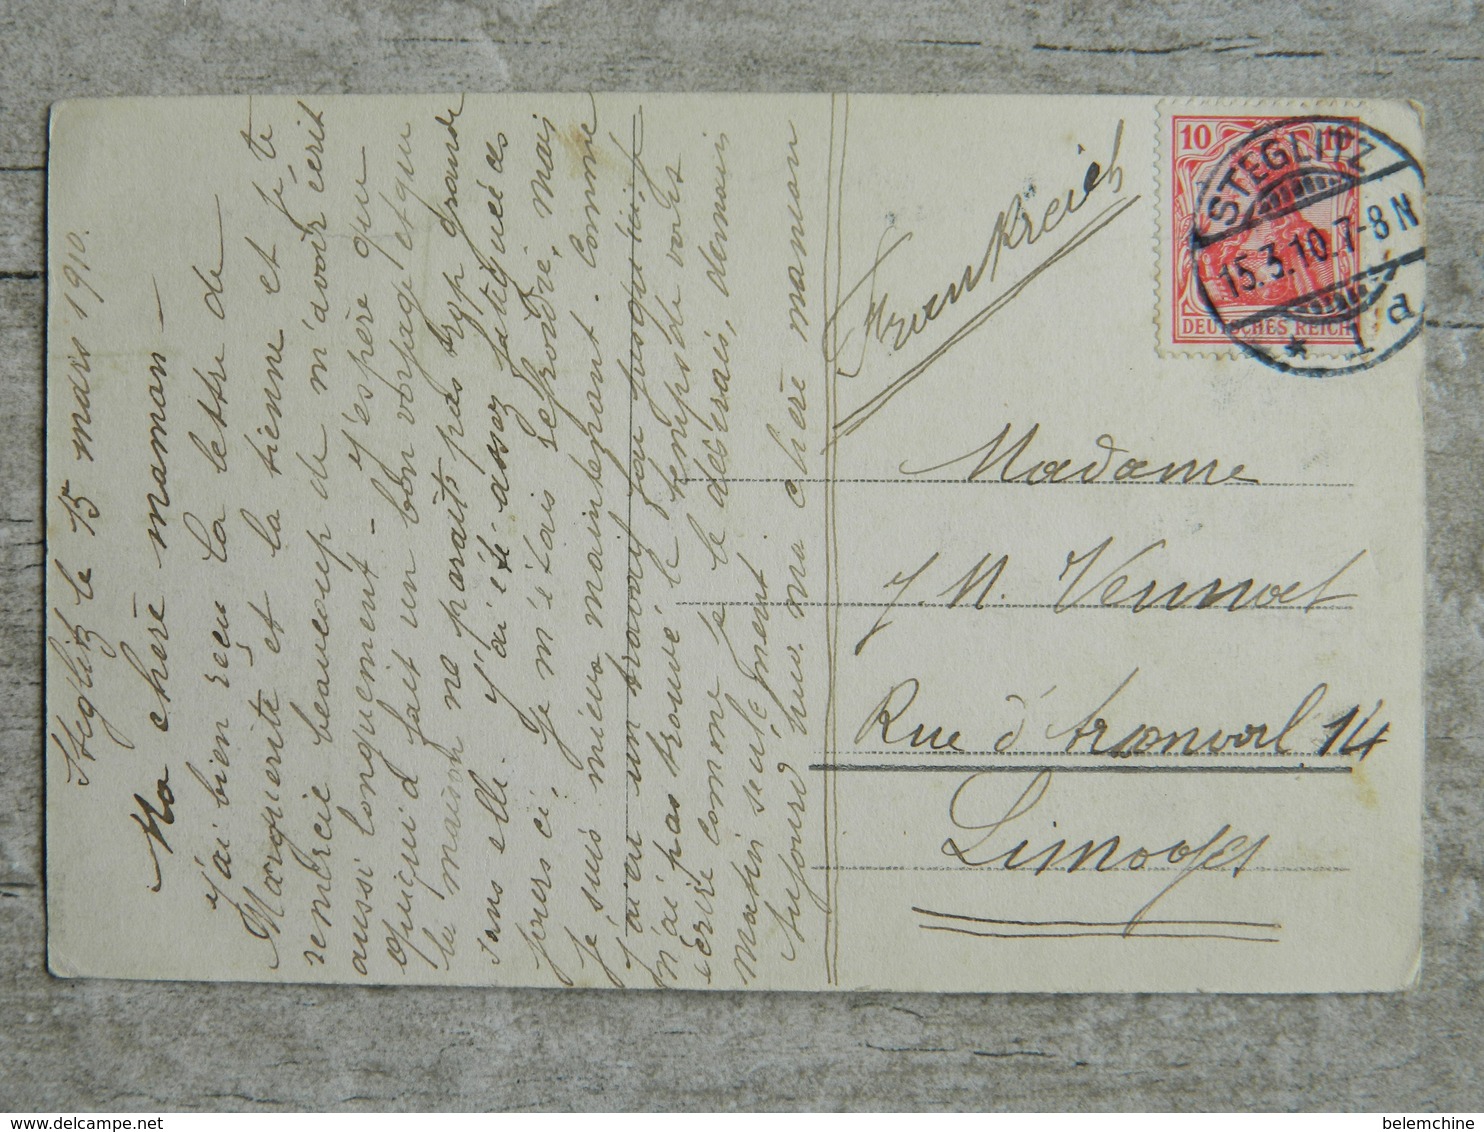 Steglitz le 15 mars 1910.
Ma chère maman -
J'ai bien reçu la lettre de
Marguerite et la tienne et je te
remercie beaucoup de m'avoir écrit
aussi longuement - J'espère que
quiqui a fait un bon voyage et que
la maison ne paraîtra pas trop grande
sans elle. J'ai été assez fatiguée ces
jours ci, je m'étais refroidie, mais
je suis mieux maintenant. Comme
j'ai eu un travail fou jusqu'ici je
n'ai pas trouvé le temps de vous
écrire comme je le désirais, demain
matin seulement
Aujourd'hui. ma chère maman
Frankreich
10 10
DEUTSCHES REICH
STEGLITZ
15.3.10.7-8N
* 1 d
Madame
J. M. Vennoet
Rue d'Arsonval 14
Limoges
belemchine